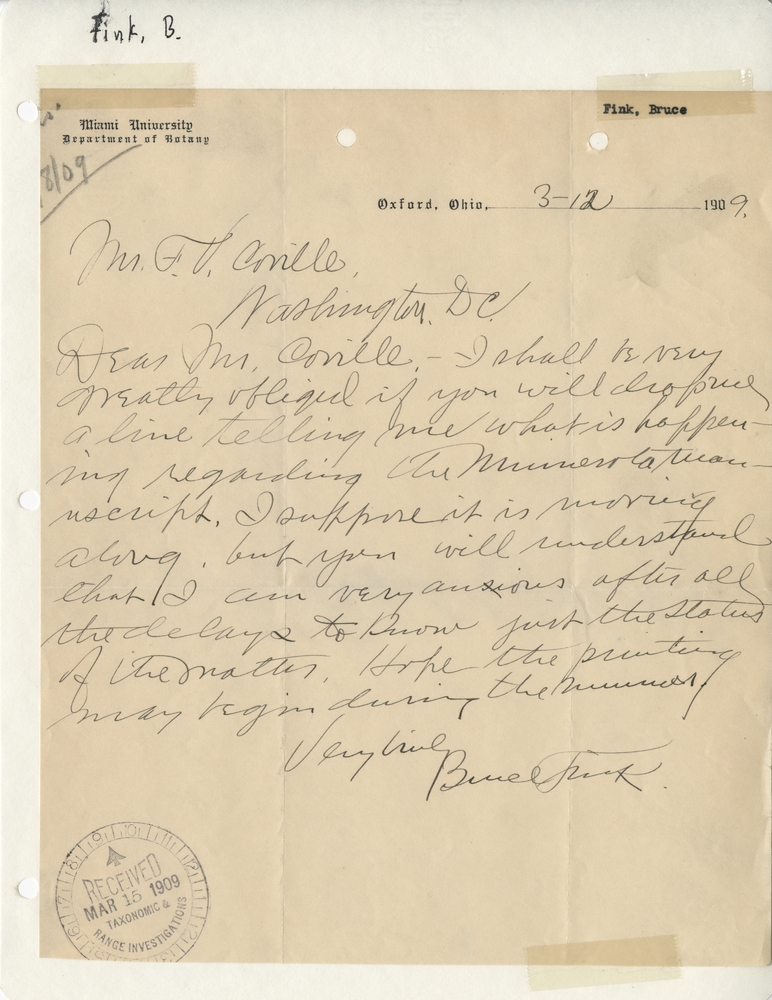 Fink, B.
Fink, Bruce
Miami University
Department of Botany
8/09
Oxford, Ohio, 3-12 1909.
Mr. F. V. Coville,
Washington, D.C.
Dear Mr. Coville, - I shall be very
greatly obliged if you will drop me
a line telling me what is happen-
ing regarding the Minnesota man-
uscript. I suppose it is moving
along, but you will understand
that I am very anxious after all
the delays to know just the status
of the matter. Hope the printing
may begin during the summer.
Very truly
Bruce Fink.
RECEIVED
MAR 15 1909
TAXONOMIC &
RANGE INVESTIGATIONS